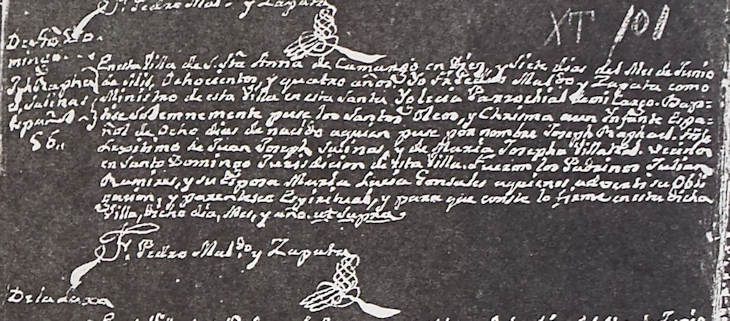 Fr. Pedro Maldo. y Zapata
XT 101
De Sto. Do-
mingo
Jph. Raphael
Salinas
Español
56,,
En esta Villa de S. Sta. Anna de Camargo en Diez, y Siete dias del Mes de Junio
de mil, Ochocientos, y quatro años. Yo Fr. Pedro Maldo. y Zapata como
Ministro de esta Villa en esta Santa Yglecia Parrochial de mi Cargo. Bap-
tise Solemnemente puse los Santos Oleos, y Chrisma a un Infante Espa-
ñol de Ocho dias de nacido a quien puse por nombre Joseph Raphael. hijo
Lexitimo de Juan Joseph Salinas, y de Maria Josepha Villareal. vecinos
en Santo Domingo Jurisdicion de esta Villa. fueron los Padrinos Julian
Ramires, y su Esposa Maria Luisa Gonsales a quienes, adverti su Obli-
gacion, y parentesco Espiritual, y para que conste lo firme en esta dicha
Villa, dicho dia, Mes, y año. ut Supra
Fr. Pedro Maldo. y Zapata
De la